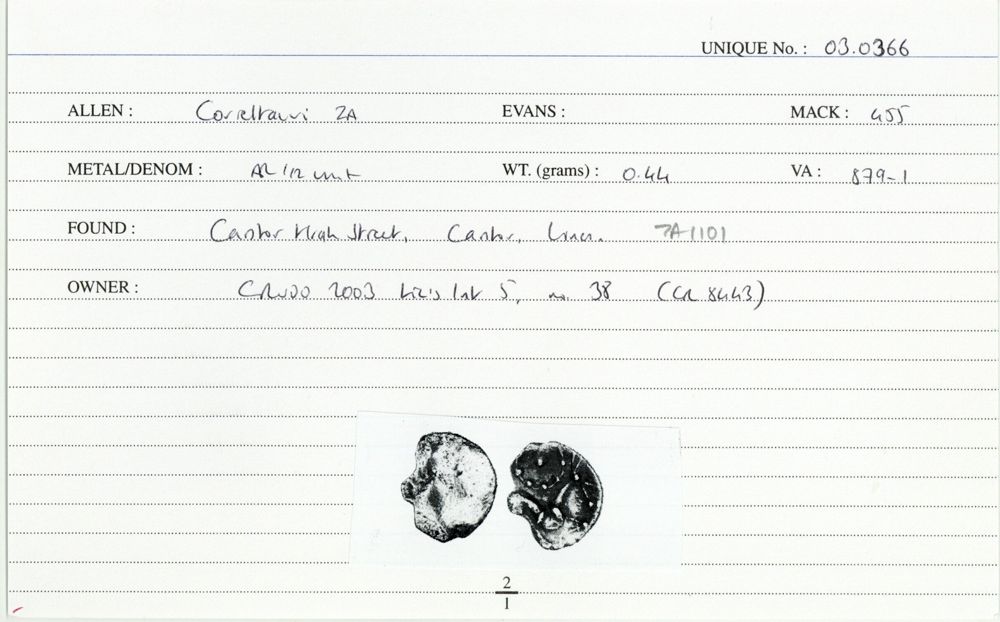 UNIQUE No. : 03.0366
ALLEN : Corieltauvi 2A EVANS : MACK : 455
METAL/DENOM : AR 1/2 unit WT. (grams) : 0.44 VA : 879-1
FOUND : Caistor High Street, Caistor, Lincs. TA1101
OWNER : 2003 Liz's 5, no. 38 (CR 8443)
2
1